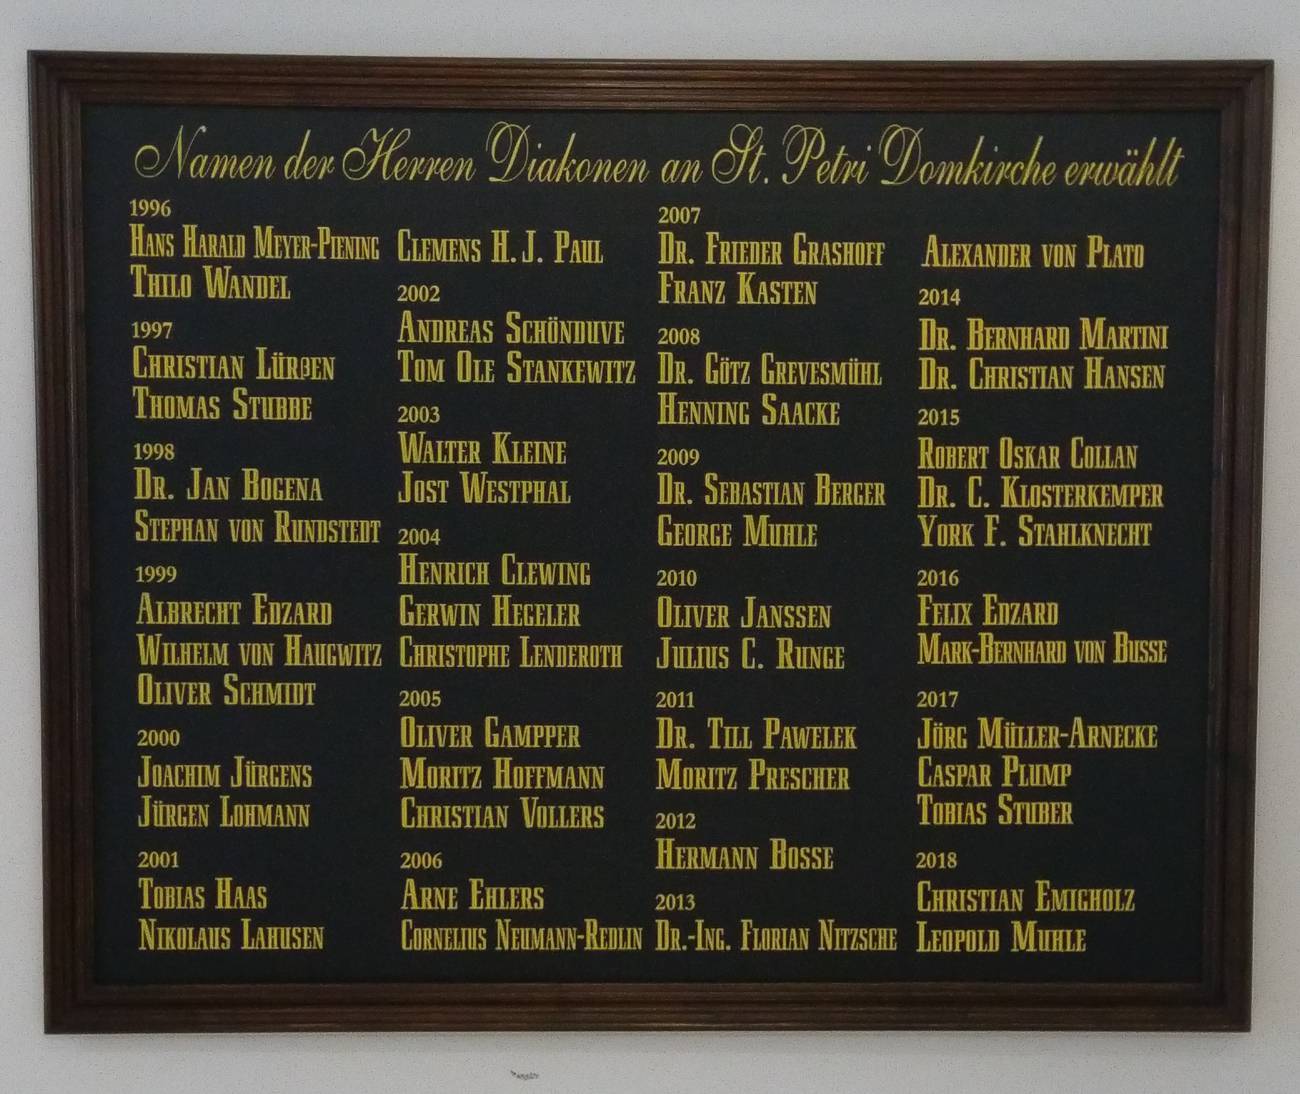 Namen der Herren Diakonen an St. Petri Domkirche erwählt
1996
Hans Harald Meyer-Piening
Thilo Wandel
1997
Christian Lürßen
Thomas Stubbe
1998
Dr. Jan Bogena
Stephan von Rundstedt
1999
Albrecht Edzard
Wilhelm von Haugwitz
Oliver Schmidt
2000
Joachim Jürgens
Jürgen Lohmann
2001
Tobias Haas
Nikolaus Lahusen
Clemens H. J. Paul
2002
Andreas Schönduve
Tom Ole Stankewitz
2003
Walter Kleine
Jost Westphal
2004
Henrich Clewing
Gerwin Hegeler
Christophe Lenderoth
2005
Oliver Gampper
Moritz Hoffmann
Christian Vollers
2006
Arne Ehlers
Cornelius Neumann-Redlin
2007
Dr. Frieder Grashoff
Franz Kasten
2008
Dr. Götz Grevesmühl
Henning Saacke
2009
Dr. Sebastian Berger
George Muhle
2010
Oliver Janssen
Julius C. Runge
2011
Dr. Till Pawelek
Moritz Prescher
2012
Hermann Bosse
2013
Dr.-Ing. Florian Nitzsche
Alexander von Plato
2014
Dr. Bernhard Martini
Dr. Christian Hansen
2015
Robert Oskar Collan
Dr. C. Klosterkemper
York F. Stahlknecht
2016
Felix Edzard
Mark-Bernhard von Busse
2017
Jörg Müller-Arnecke
Caspar Plump
Tobias Stuber
2018
Christian Emigholz
Leopold Muhle